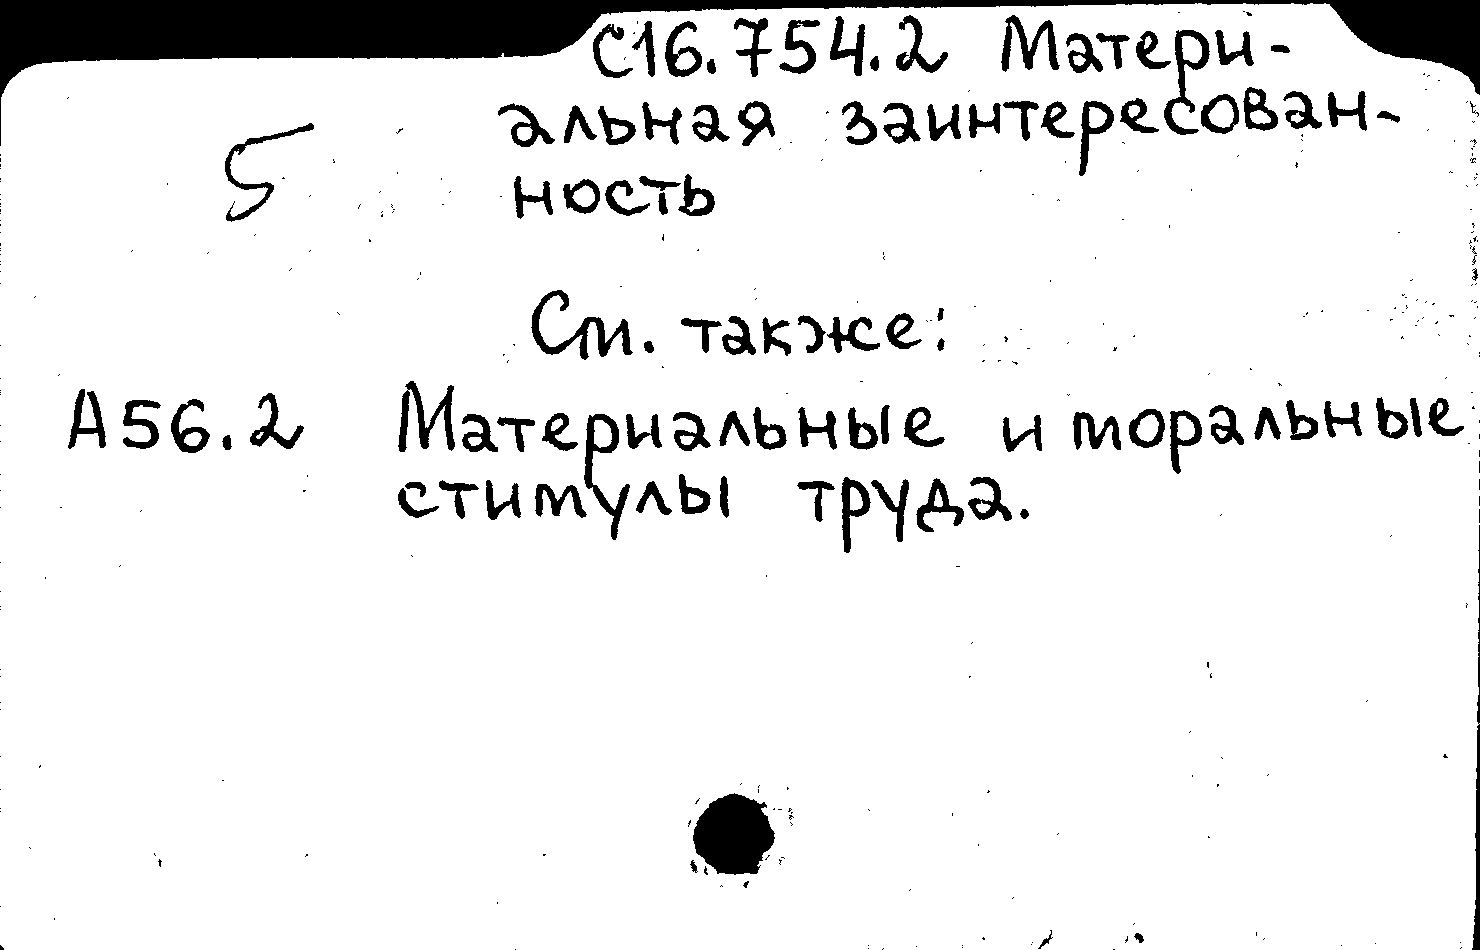 С16.754.2 Матери-
альная заинтересован-
5
ность
См. также:
А56.2 Материальные и моральные
стимулы труда.